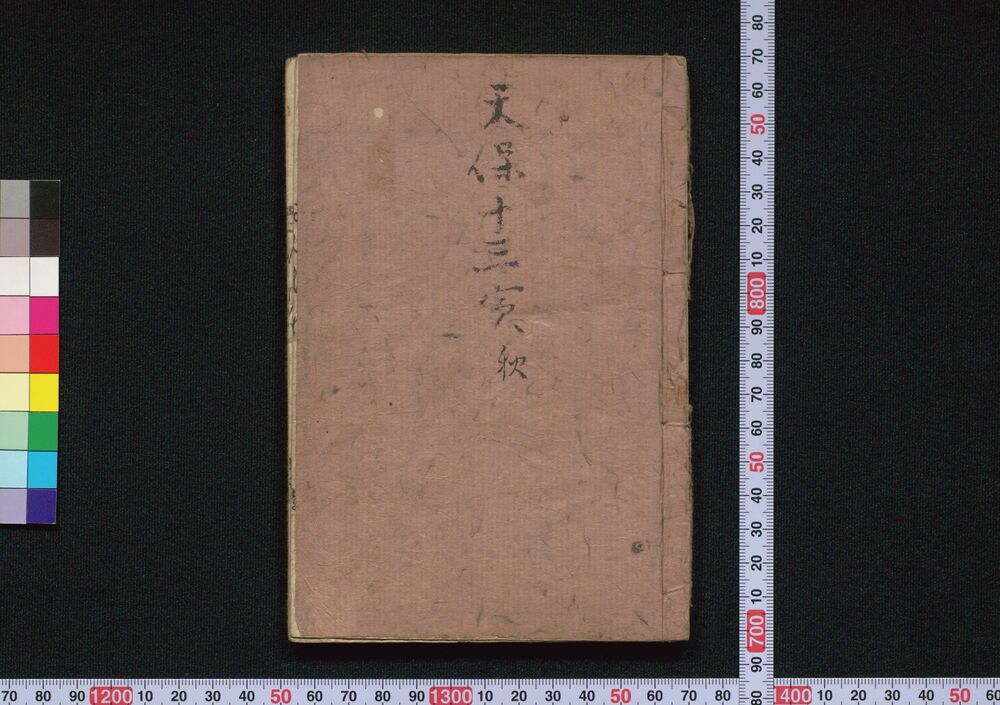 天保十三寅秋
80
70
60
50
40
30
20
10
800
90
80
70
60
50
40
30
20
10
700
90
80
70 80 90 1200 10 20 30 40 50 60 70 80 90 1300 10 20 30 40 50 60 70 80 1400 10 20 30 40 50 60